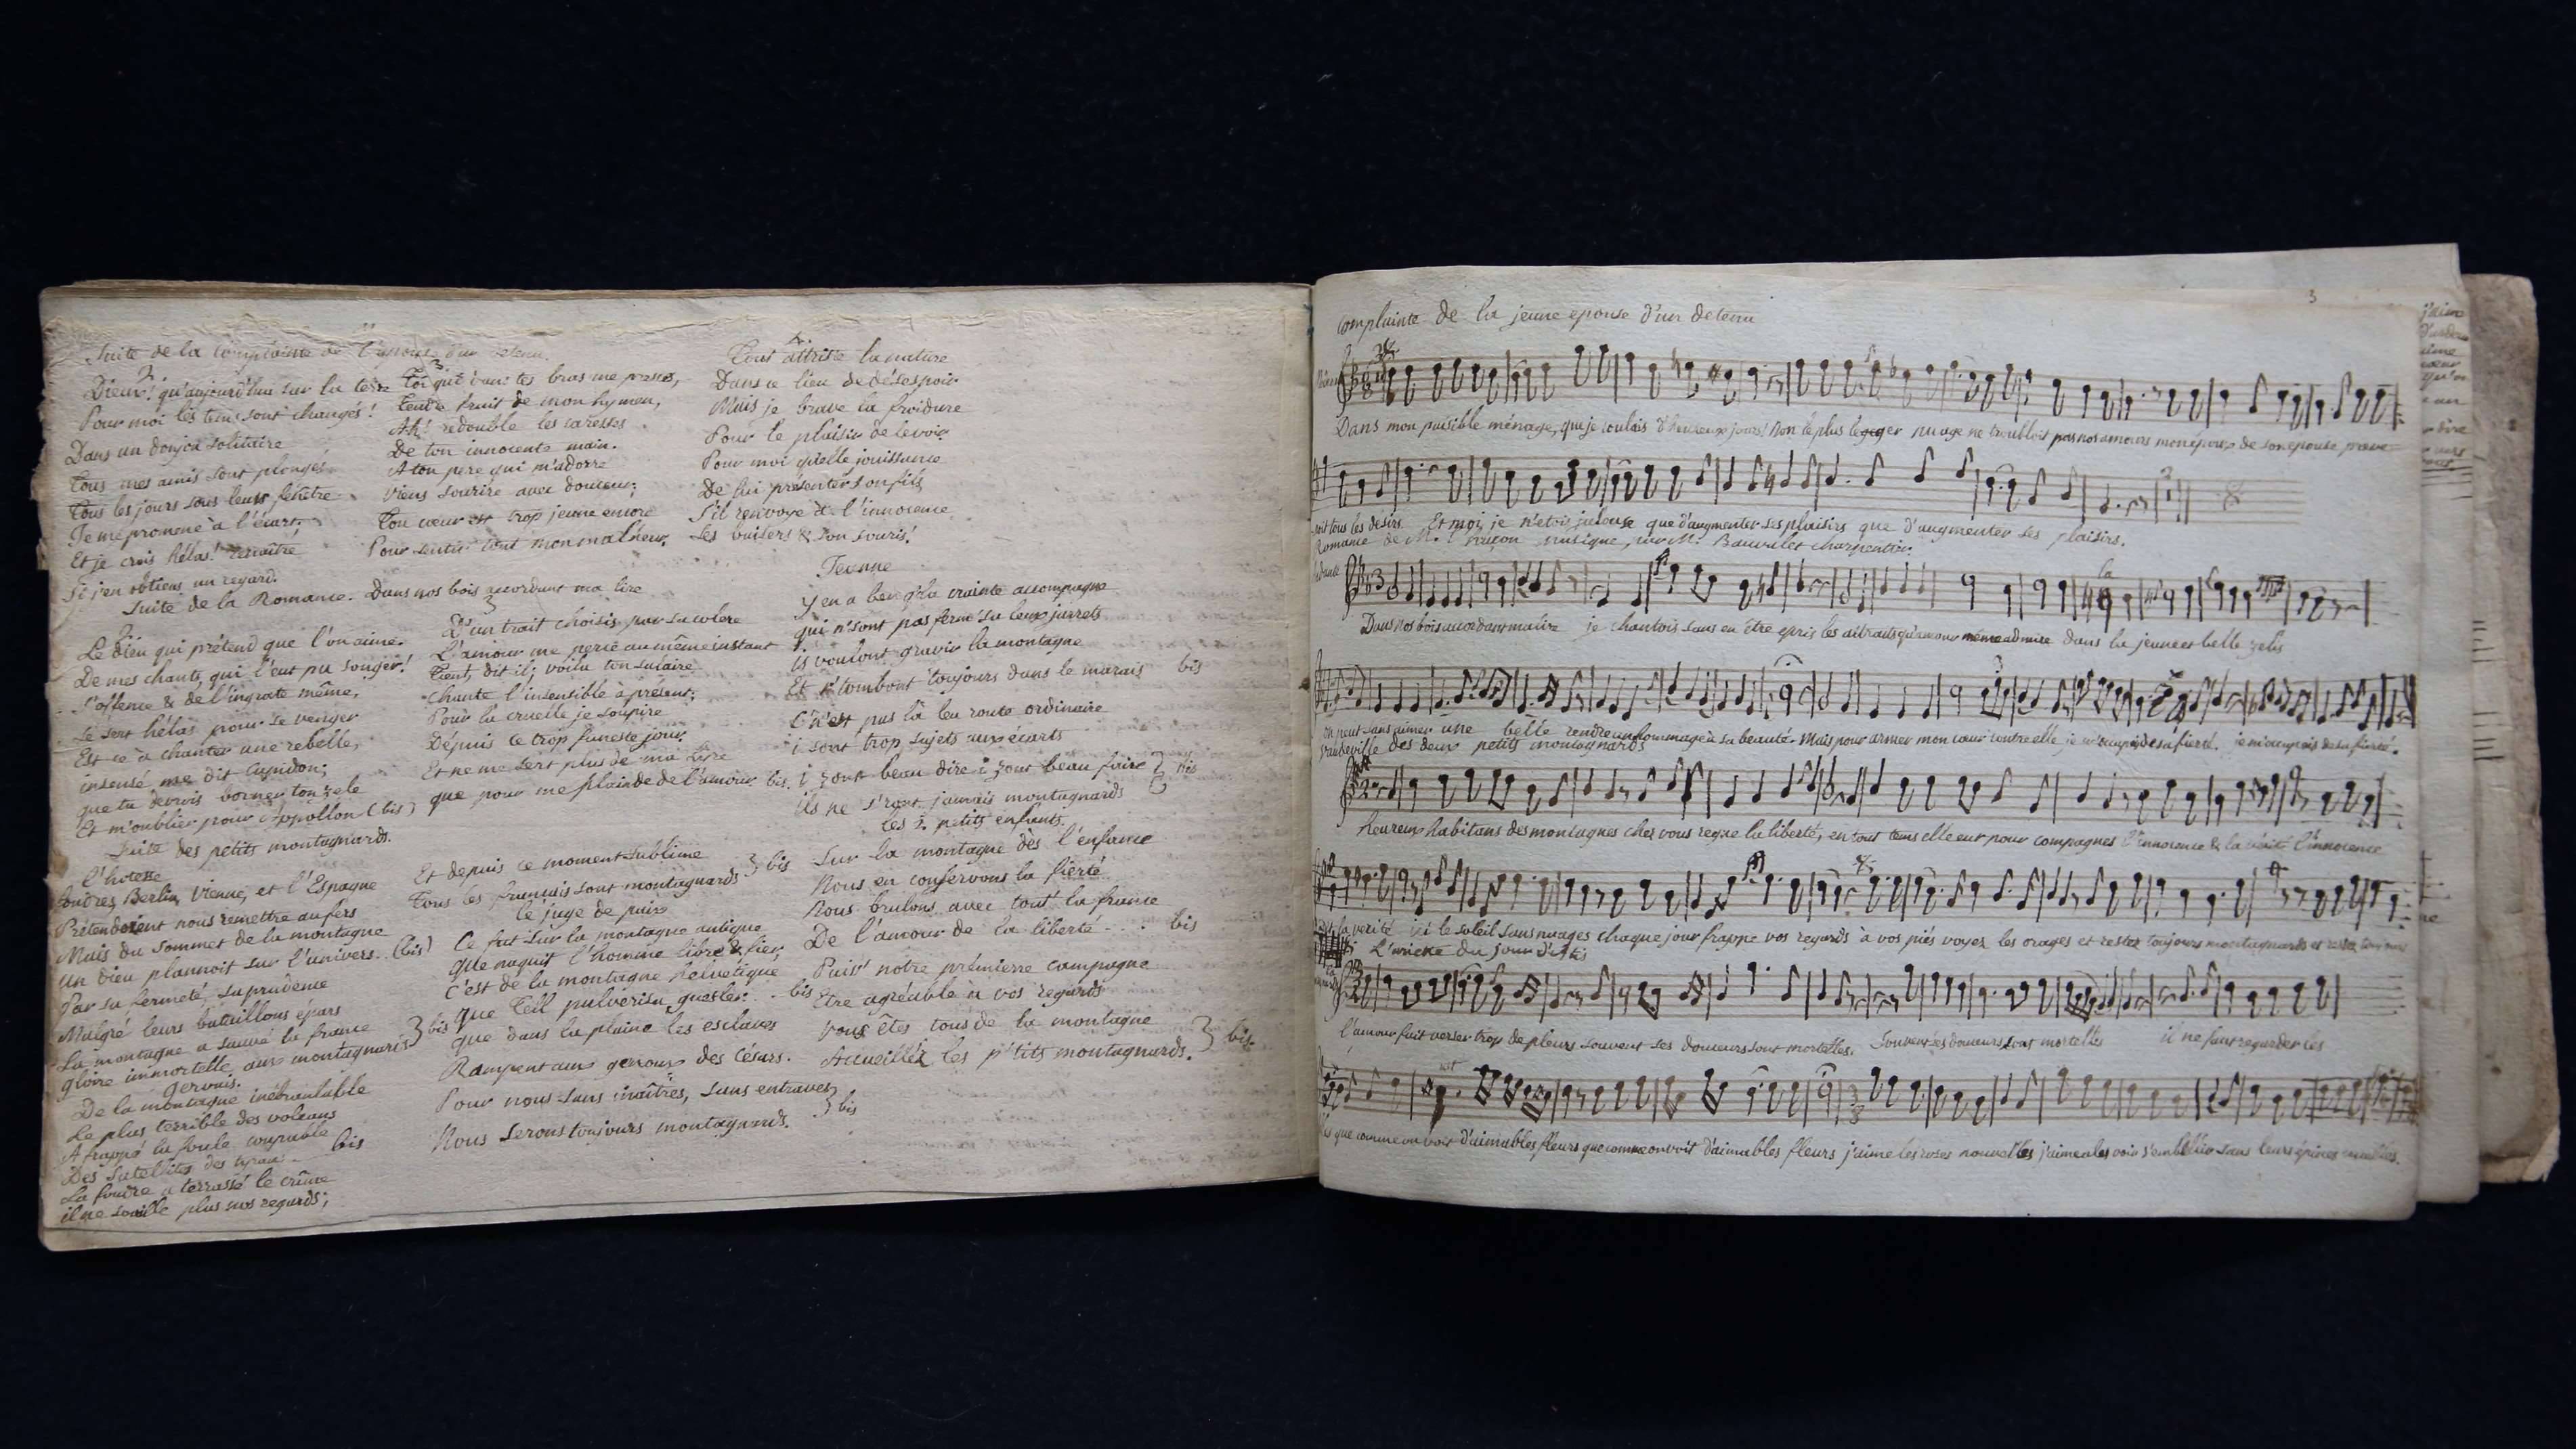 Suite de la Complainte de l'épouse d'un detenu.
2
Dieux! qu'aujourd'hui sur la terre
Pour moi les tems sont changés!
Dans un donjon solitaire
Tous mes amis sont plongés.
Tous les jours sous leurs fenêtre
Je me promene à l'écart;
Et je crois hélas! renaître
Si j'en obtiens un regard.
3
Toi qui dans tes bras me presses,
Tendre fruit de mon hymen,
Ah! redouble les caresses
De ton innocente main.
A ton pere qui m'adorre
viens sourire avec douceur;
Ton cœur est trop jeune encore
Pour sentir tout mon malheur.
4
Tout attriste la nature
Dans ce lieu de désespoir
Mais je brave la froidure
Pour le plaisir de le voir
Pour moi qu'elle jouissance
De lui présenter son fils
S'il renvoye à l'innocence
Ses baisers & son souris!
Suite de la Romance. Dans nos bois accordant ma lire
2
Le dieu qui prétend que l'on aime.
De mes chants, qui l'eut pu songer!
S'offence & de l'ingrate même,
Se sert hélas pour se venger
Est ce à chanter une rebelle,
insensé me dit Cupidon;
que tu devrois borner ton zele
Et m'oublier pour Appollon (bis)
3
D'un trait choisis par sa colere
L'amour me perce au même instant
Tient, dit il, voila ton salaire
Chante l'insensible à présent;
Pour la cruelle je soupire
Dépuis ce trop funeste jour.
Et ne me sert plus de ma lire
que pour me plainde de l'amour bis.
Suite des petits montagnards.
l'hotesse
Londres, Berlin, Vienne, et l'Espagne
Prétendoient nous remettre au fers
Mais du sommet de la montagne
un dieu plannoit sur l'univers. (bis)
Par sa fermeté, sa prudence
Malgré leurs bataillons épars
La montagne a sauvé la france
gloire immortelle aux montagnards } bis
Gervais.
De la montagne inébranlable
Le plus terrible des volcans
A frappé la foule coupable
Des satellites des tyrans bis
La foudre a terrassé le crime
il ne souille plus nos regards;
Et depuis ce moment sublime
Tous les français sont montagnards } bis
le juge de paix
Ce fut sur la montagne antique
que naquit l'homme libre & fier,
C'est de la montagne helvétique
que Tell pulverisa guesler. bis
que dans la plaine les esclaves
Rampent aux genoux des Césars.
Pour nous sans maîtres, sans entraves
Nous serons toujours montagnards. } bis
Jeanne
y en a ben q'la crainte accompagne
qui n'sont pas ferme su leux jarrets
is voulont gravir la montagne
Et i'tombont toujours dans le marais bis
C'n'est pas là leu route ordinaire
i sont trop sujets aux écarts
i zont beau dire i zont beau faire } bis
ils ne s'ront jamais montagnards
les 2. petits enfants.
Sur la montagne dès l'enfance
Nous en conservons la fierté
Nous brulons avec tout la france
De l'amour de la liberté . . . bis
Puiss' notre prémierre campagne
Etre agréable à vos regards
vous êtes tous de la montagne
Accueillés les p'tits montagnards. } bis.
3
Complainte de la jeune epouse d'un detenu
Dans mon paisible ménage, que je coulais d'heureux jours! Non le plus leger nuage ne troubloit pas nos amours mon époux de son epouse
soit tous les désirs. Et moi, je n'etois jalouse que d'augmenter ses plaisirs que d'augmenter ses plaisirs.
Romance de M. musique, par M. Bauvarlet charpentier.
la
Dans nos bois accordant ma lire je chantois sans en être epris les attraits qu'amour même admire dans la jeune et belle zelis
on peut sans aimer une belle rendre un hommage à sa beauté. Mais pour armer mon cœur contre elle je m'occupois de sa fierté. je m'occupois de sa fierté.
Vaudeville des deux petits montagnards
heureux habitans des montagnes chez vous regne la liberté, en tout tems elle eut pour compagnes l'innocence & la vérité l'innocence
& la verité ici le soleil sans nuages chaque jour frappe vos regards à vos piés voyez les orages et restez toujours montagnards et restez toujours
l'amour fait verser trop de pleurs souvent ses douceurs sont mortelles. Souvent ses douceurs sont mortelles il ne faut regarder les
que comme on voit d'aimables fleurs que comme on voit d'aimables fleurs j'aime les roses nouvelles j'aime a les voir s'embellir sans leurs épines